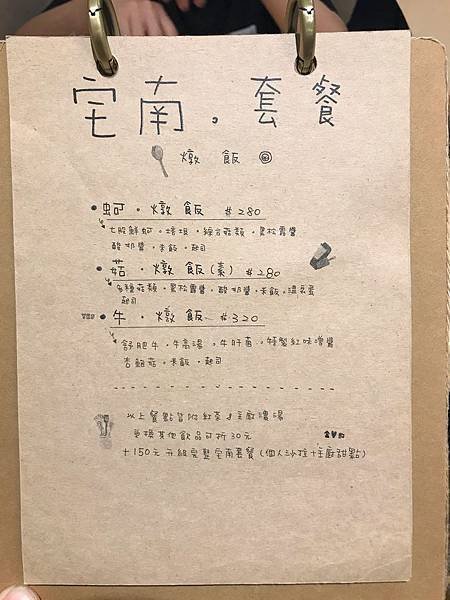 宅南，套餐
燉飯
蚵・燉飯 #280
七股鮮蚵・培根・綜合菇類・黑松露醬
酸奶醬・米飯・起司
菇・燉飯(素) #280
多種菇類・黑松露醬・酸奶醬・米飯・溫泉蛋
起司
牛・燉飯 #320
舒肥牛・牛高湯・牛肝菌・特製紅味噌醬
杏鮑菇・米飯・起司
以上餐點皆附紅茶&主廚濃湯
兌換其他飲品可折30元
+150元升級完整宅南套餐(個人沙拉+主廚甜點)